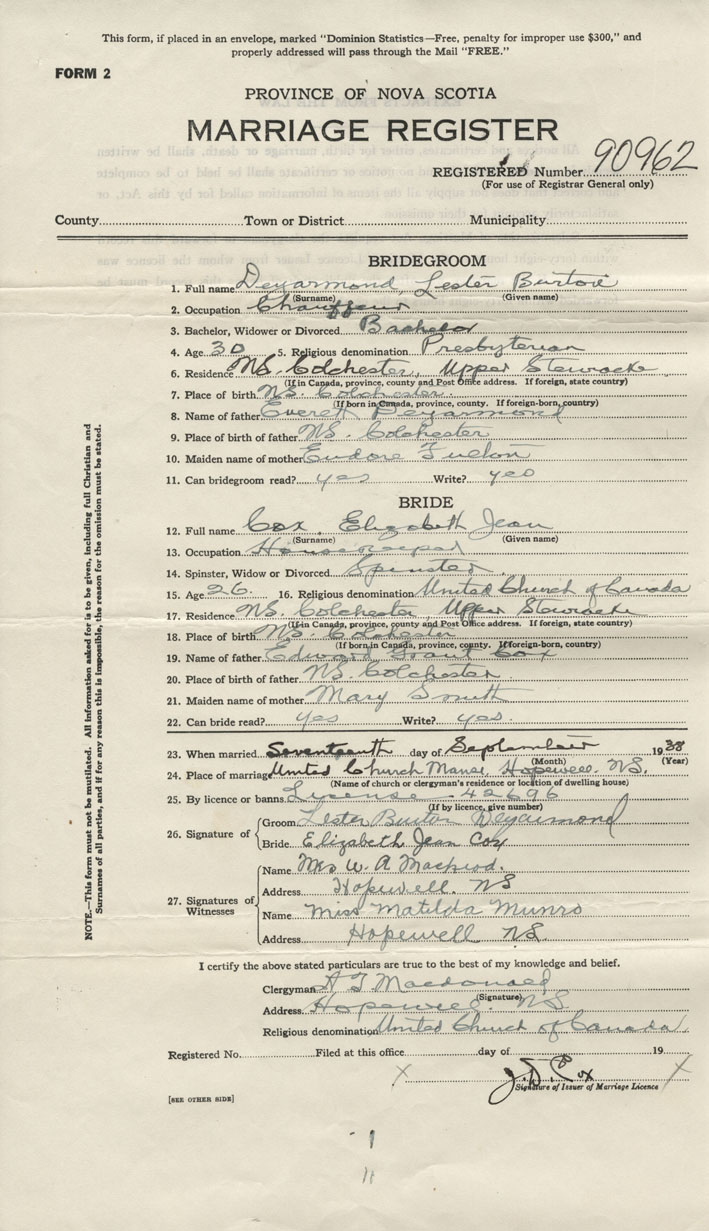 This form, if placed in an envelope, marked "Dominion Statistics—Free, penalty for improper use $300," and
properly addressed will pass through the Mail "FREE."
FORM 2
PROVINCE OF NOVA SCOTIA
MARRIAGE REGISTER
REGISTERED Number 90962
(For use of Registrar General only)
County Town or District Municipality
BRIDEGROOM
1. Full name Deyarmond, Lester Burton
(Surname) (Given name)
2. Occupation Chauffeur
3. Bachelor, Widower or Divorced Bachelor
4. Age 30 5. Religious denomination Presbyterian
6. Residence NS. Colchester, Upper Stewiacke
(If in Canada, province, county and Post Office address. If foreign, state country)
7. Place of birth NS. Colchester
(If born in Canada, province, county. If foreign-born, country)
8. Name of father Everett Deyarmond
9. Place of birth of father NS. Colchester
10. Maiden name of mother Eudore Fulton
11. Can bridegroom read? yes Write? yes
BRIDE
12. Full name Cox, Elizabeth Jean
(Surname) (Given name)
13. Occupation Housekeeper
14. Spinster, Widow or Divorced Spinster
15. Age 26. 16. Religious denomination United Church of Canada
17. Residence NS. Colchester, Upper Stewiacke
(If in Canada, province, county and Post Office address. If foreign, state country)
18. Place of birth NS. Colchester
(If born in Canada, province, county. If foreign-born, country)
19. Name of father Edward Grant Cox
20. Place of birth of father NS. Colchester
21. Maiden name of mother Mary Smith
22. Can bride read? yes Write? yes.
23. When married Seventeenth day of September 1938
(Month) (Year)
24. Place of marriage United Church Manse, Hopewell, NS.
(Name of church or clergyman's residence or location of dwelling house)
25. By licence or banns License - 42696
(If by licence, give number)
26. Signature of
Groom Lester Burton Deyarmond
Bride Elizabeth Jean Cox
27. Signatures of Witnesses
Name Mrs W. A Macleod.
Address Hopewell. NS
Name Miss Matilda Munro
Address Hopewell NS.
I certify the above stated particulars are true to the best of my knowledge and belief.
Clergyman A J Macdonald
(Signature)
Address Hopewell, NS.
Religious denomination United Church of Canada
Registered No. Filed at this office day of 19
X J. D. Cox X
Signature of Issuer of Marriage Licence
[SEE OTHER SIDE]
NOTE.—This form must not be mutilated. All information asked for is to be given, including full Christian and
Surnames of all parties, and if for any reason this is impossible, the reason for the omission must be stated.